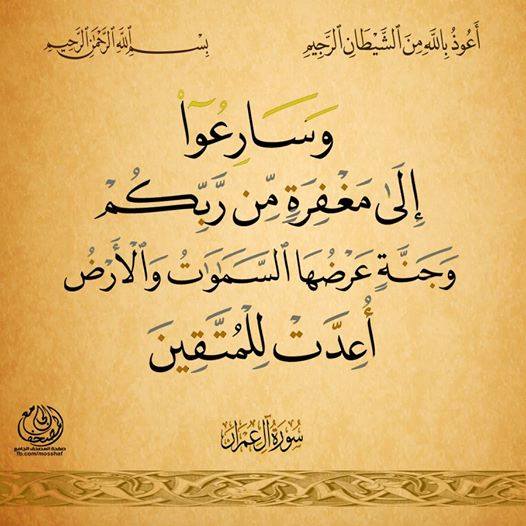 أَعُوذُ بِاللَّهِ مِنَ ٱلشَّيْطَانِ ٱلرَّجِيمِ
بِسْمِ ٱللَّهِ ٱلرَّحْمَٰنِ ٱلرَّحِيمِ
وَسَارِعُوٓا۟
إِلَىٰ مَغْفِرَةٍ مِّن رَّبِّكُمْ
وَجَنَّةٍ عَرْضُهَا ٱلسَّمَٰوَٰتُ وَٱلْأَرْضُ
أُعِدَّتْ لِلْمُتَّقِينَ
سُورَةُ آلِ عِمْرَانَ
المصحف الجامع
صفحة المصحف الجامع
fb.com/mosshaf